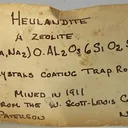 HEULANDITE
A ZEOLITE
(Ca,Na2)O.Al2O3 6SiO2 5
CRYSTALS COATING TRAP. RO
MINED IN 1911
FROM THE W. SCOTT-LEWIS C
PATERSON N